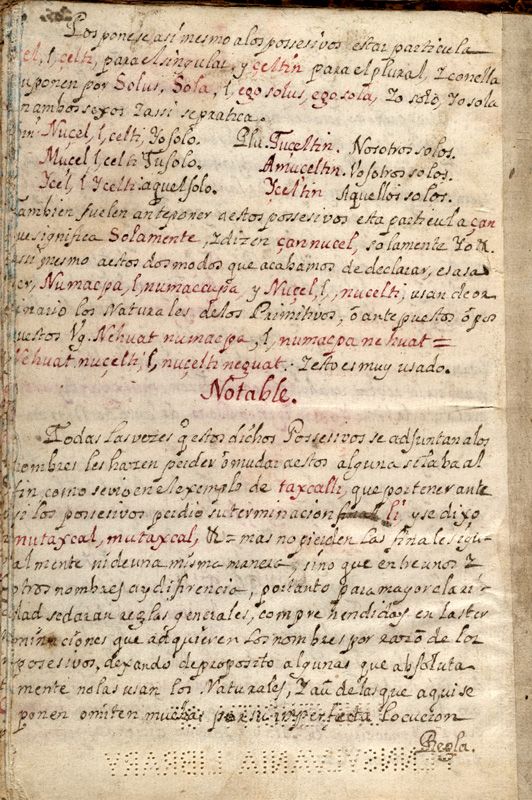 Posponese así mesmo a los possesivos estar particula
cel, l, celti, para el singular, y celtin para el plural, Z con ella
suponen por Solus, Sola, l, ego solus, ego sola, Yo solo, Yo sola
en ambos sexos Z assi se pratica.
Sin Nucel, l, celti, Yo solo. Plu. Tuceltin. Nosotros solos.
Mucel l, celti Tu solo. Amuceltin. Vosotros solos.
Ycel, l Ycelti aquel solo. Yceltin Aquellos solos.
Tambien suelen anteponer a estos possesivos esta particula çan
que significa Solamente, Z dizen çan nucel, solamente Yo &.
assi mesmo a estos dos modos que acabamos de declarar, es a sa
ber, Numacpa, l, numaccapa, y Nuçel, l, nucelti, usan de or
dinario los Naturales, de los Primitivos, ô ante puestos ô pos
puestos Vg. Nehuat numacpa, l, numacpa nehuat =
Nehuat nuçelti, l, nuçelti nequat. Z esto es muy usado.
Notable.
Todas las vezes q estos dichos Possesivos se adjuntan a los
nombres les hazen perder ô mudar a estos alguna silaba al
fin, como se vio en el exemplo de taxcalli, que por tener ante
si los possesivos perdio su terminacion final li y se dixo
nutaxcal, mutaxcal, & = mas no pierden las finales igu
almente ni de una misma manera, sino que entre unos Z
otros nombres ay difirencia, por tanto para mayor clari
dad se daran reglas generales, comprehendidas en las ter
minaciones que adquieren los nombres por razō de los
posesivos, dexando de proposito algunas que absoluta
mente no las usan los Naturales, Z aū de las que aqui se
ponen omiten muchas por su imperfecta locucion
Regla.
PENNSYLVANIA LIBRARY